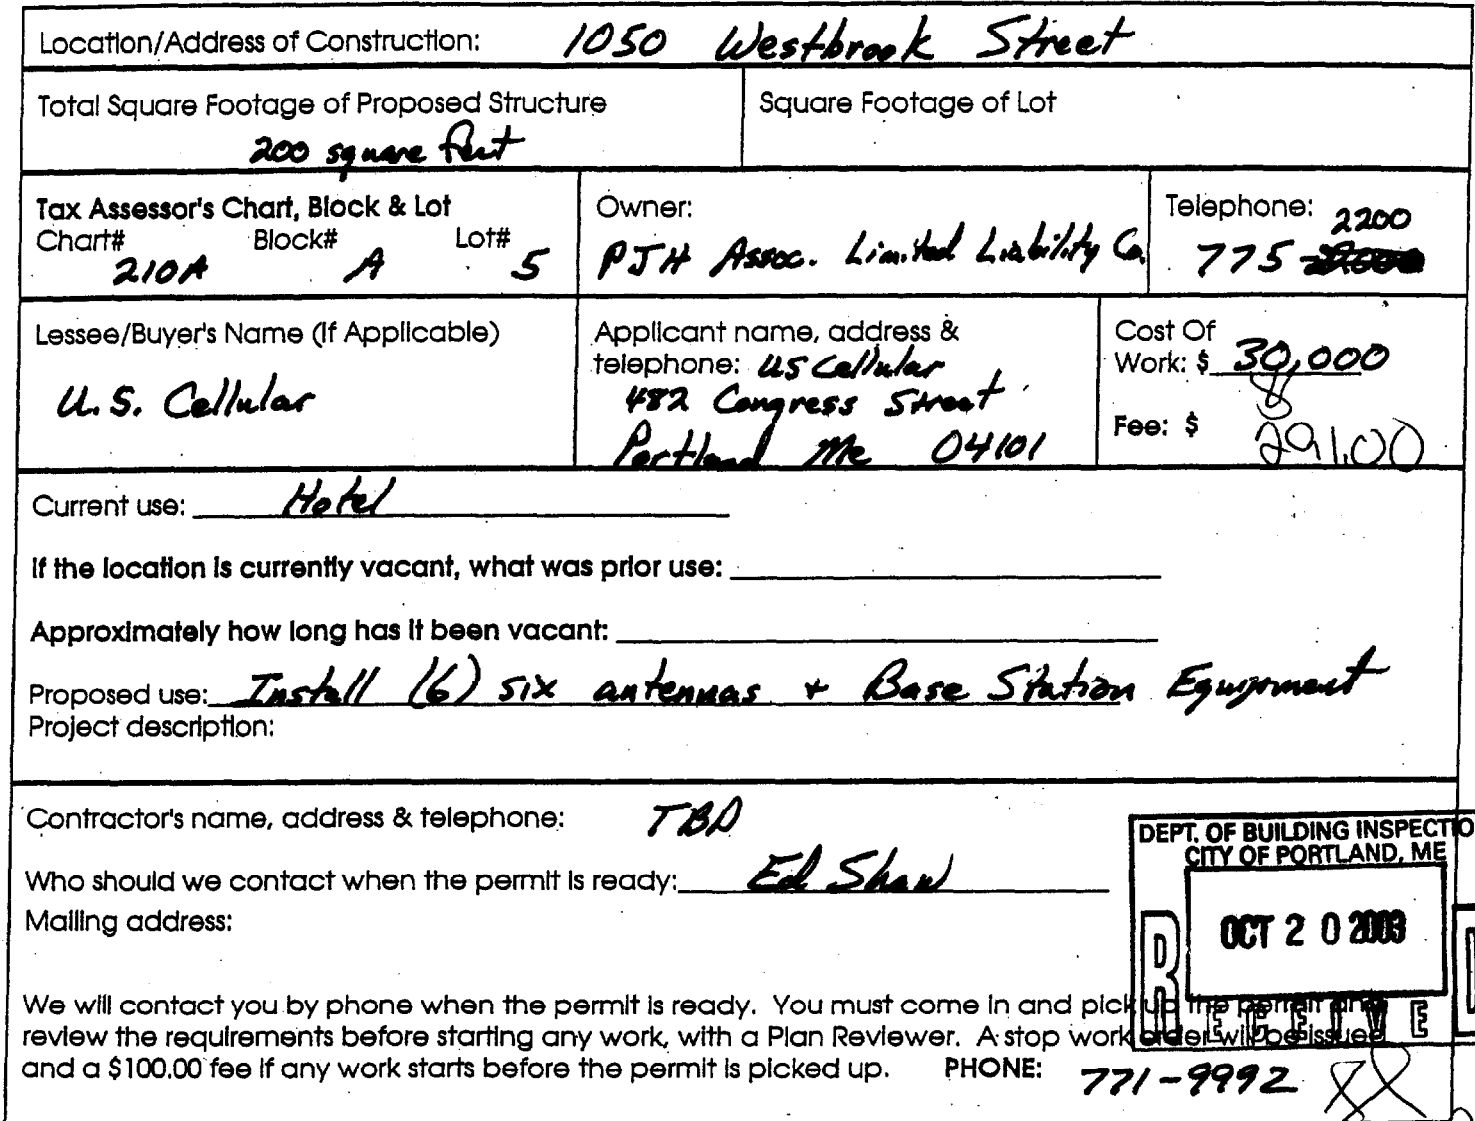 Location/Address of Construction: 1050 Westbrook Street
Total Square Footage of Proposed Structure
200 square feet
Square Footage of Lot
Tax Assessor's Chart, Block & Lot
Chart# Block# Lot#
210A A 5
Owner:
PJH Assoc. Limited Liability Co.
Telephone: 2200
775
Lessee/Buyer's Name (If Applicable)
U.S. Cellular
Applicant name, address &
telephone: US Cellular
482 Congress Street
Portland Me 04101
Cost Of
Work: $ 30,000
8
Fee: $ 291.00
Current use: Hotel
If the location is currently vacant, what was prior use:
Approximately how long has it been vacant:
Proposed use: Install (6) six antennas + Base Station Equipment
Project description:
Contractor's name, address & telephone: TBD
Who should we contact when the permit is ready: Ed Shaw
Mailing address:
DEPT. OF BUILDING INSPECTIO
CITY OF PORTLAND, ME
OCT 20 2003
RECEIVE
We will contact you by phone when the permit is ready. You must come in and pick up the permit and
review the requirements before starting any work, with a Plan Reviewer. A stop work order will be issued
and a $100.00 fee if any work starts before the permit is picked up. PHONE: 771-9992